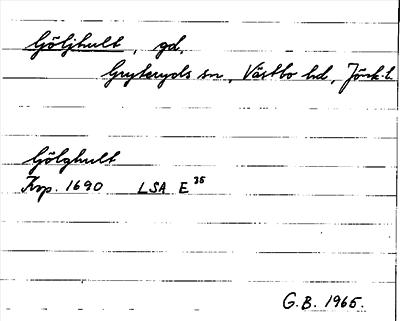 Göljhult, gd,
Gryteryds sn, Västbo hd, Jönk. l.
Gölghult
Kop. 1690 LSA E 35
G.B. 1965.